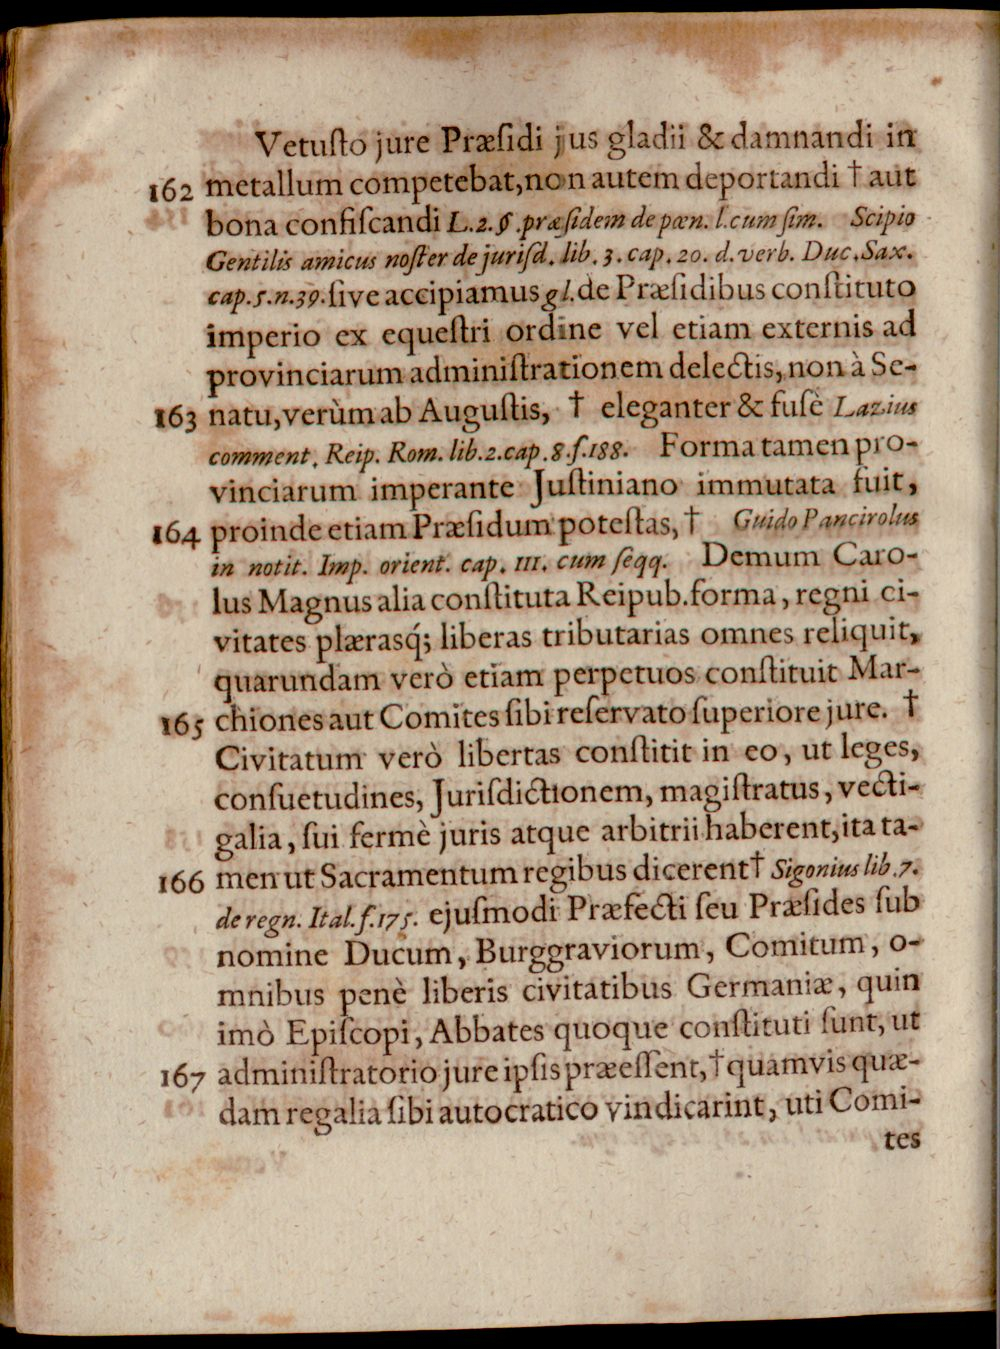 Vetuſto jure Præſidi jus gladii & damnandi in
162 metallum competebat, non autem deportandi † aut
bona confiſcandi L. 2. §. præſidem de pœn. l. cum ſim. Scipio
Gentilis amicus noſter de juriſd. lib. 3. cap. 20. d. verb. Duc. Sax.
cap. 5. n. 39. ſive accipiamus gl. de Præſidibus conſtituto
imperio ex equeſtri ordine vel etiam externis ad
provinciarum adminiſtrationem delectis, non à Se-
163 natu, verùm ab Auguſtis, † eleganter & fuſè Lazius
comment. Reip. Rom. lib. 2. cap. 8. f. 188. Forma tamen pro-
vinciarum imperante Juſtiniano immutata fuit,
164 proinde etiam Præſidum poteſtas, † Guido Pancirolus
in notit. Imp. orient. cap. 111. cum ſeqq. Demum Caro-
lus Magnus alia conſtituta Reipub. forma, regni ci-
vitates plærasq́; liberas tributarias omnes reliquit,
quarundam verò etiam perpetuos conſtituit Mar-
165 chiones aut Comites ſibi reſervato ſuperiore jure. †
Civitatum verò libertas conſtitit in eo, ut leges,
conſuetudines, Juriſdictionem, magiſtratus, vecti-
galia, ſui fermè juris atque arbitrii haberent, ita ta-
166 men ut Sacramentum regibus dicerent † Sigonius lib. 7.
de regn. Ital. f. 175. ejuſmodi Præfecti ſeu Præſides ſub
nomine Ducum, Burggraviorum, Comitum, o-
mnibus penè liberis civitatibus Germaniæ, quin
imò Epiſcopi, Abbates quoque conſtituti ſunt, ut
167 adminiſtratorio jure ipſis præeſſent, † quamvis quæ-
dam regalia ſibi autocratico vindicarint, uti Comi-
tes